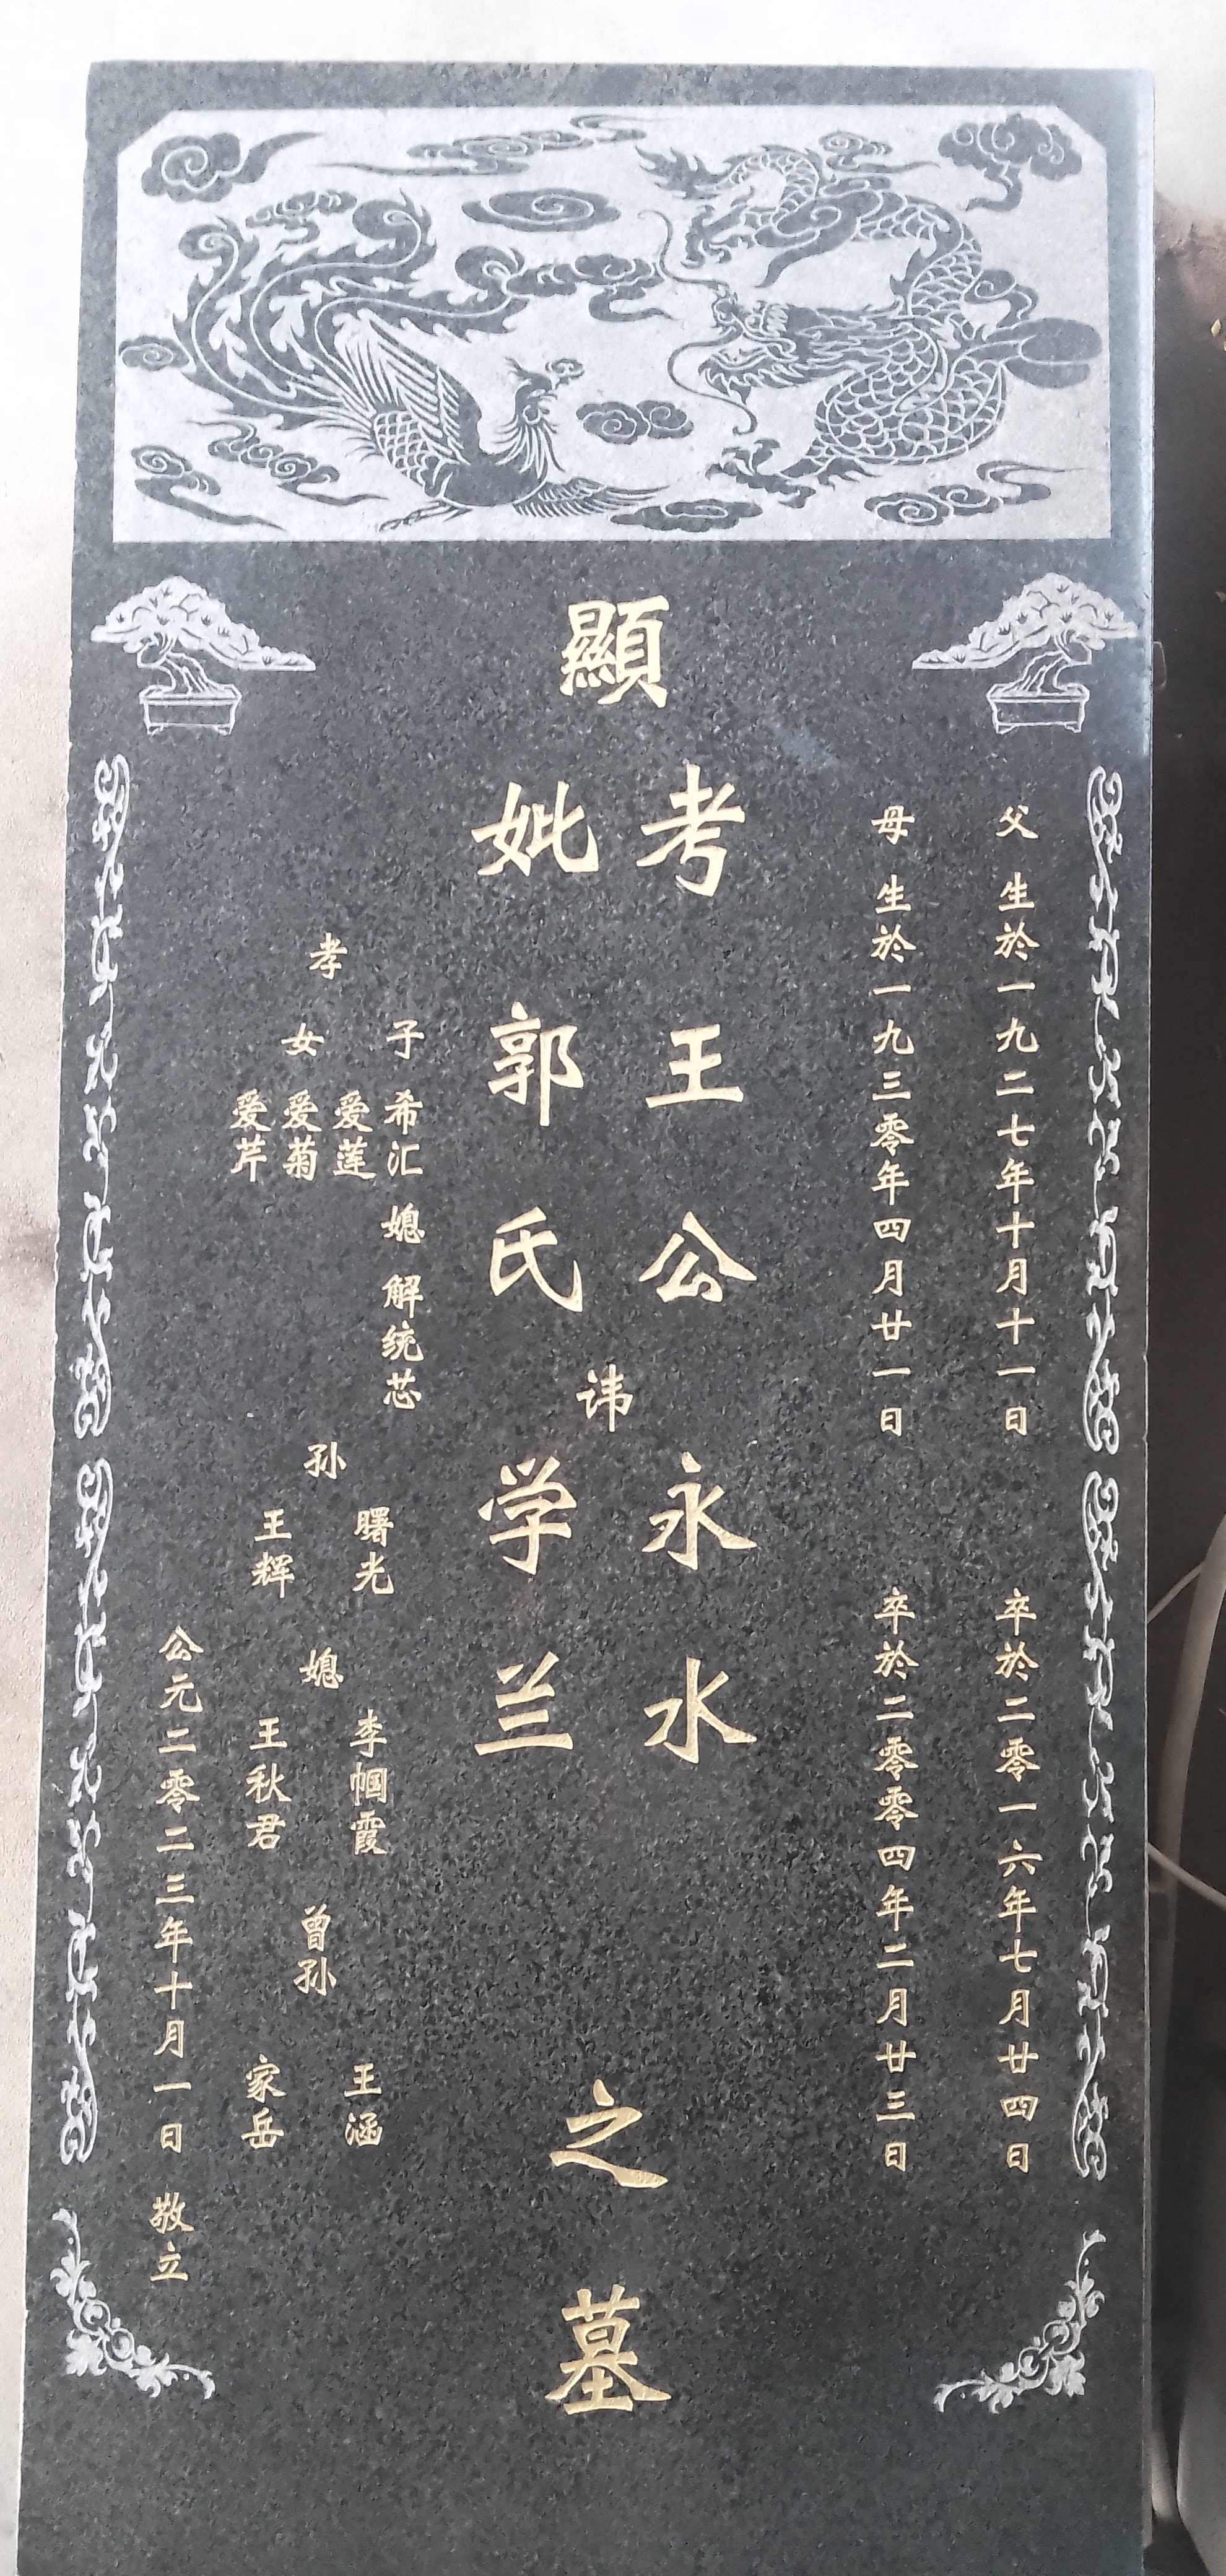 父 生於一九二七年十月十一日 卒於二零一六年七月廿四日
母 生於一九三零年四月廿一日 卒於二零零四年二月廿三日
顯
考 王公 永水
讳
妣 郭氏 学兰
之墓
孝
子 希汇 媳 解统芯
女 爱莲
爱菊
爱芹
孙
曙光
王辉
媳
李帼霞
王秋君
曾孙
王涵
家岳
公元二零二三年十月一日 敬立